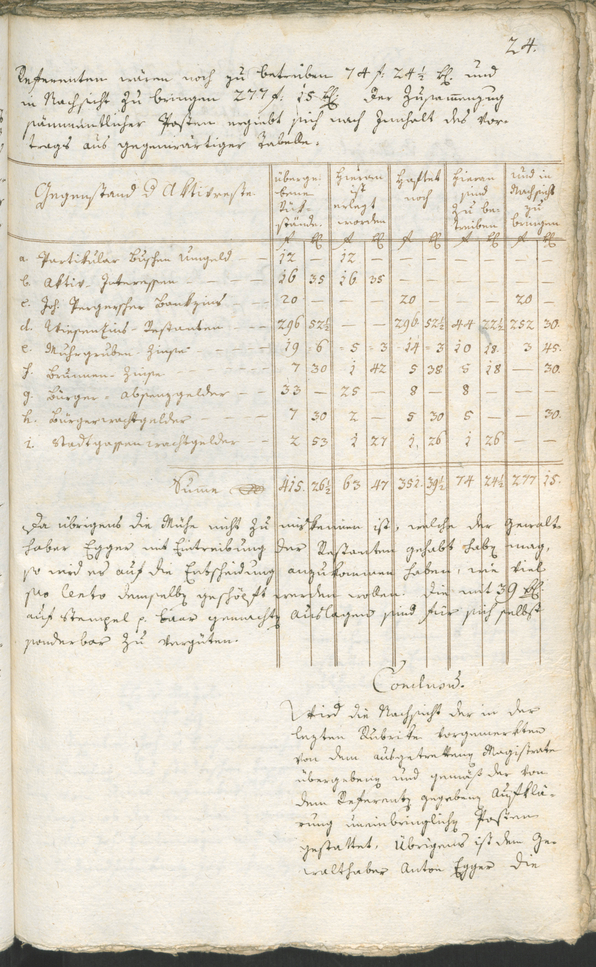 24.
Referenten wären noch zu betreiben 74 f. 24½ xr. und
in Nachsicht zu bringen 277 f. 15 xr. Der Zusammenzug
sämmentlicher Posten ergiebt sich nach Innhalt des Vor-
trags aus gegenwärtiger Tabelle.
Gegenstand d Aktivreste | überge- bene Rück- stände. | Hieran ist erlegt worden | Haftet noch | Hieran sind zu be- treiben | und in Nachsicht zu bringen
f xr f xr f xr f xr f xr
a. Partikular Buschen Umgeld — 12 — 12 —
b. Aktiv-Interessen — 16 35 16 35
c. Joh. Pergerscher Bankzins — 20 — 20 — 20 —
d. Wiesenzins-Restanten — 296 52½ — — 296 52½ 44 22½ 252 30.
e. Muhrgruben-Zinse — 19 6 5 3 14 3 10 18. 3 45.
f. Brunnen-Zinse — 7 30 1 42 5 38 5 18 — 30.
g. Bürger-Absenzgelder — 33 — 25 — 8 — 8 —
h. Bürgerwachtgelder — 7 30 2 — 5 30 5 — — 30.
i. Stadtgassenwachtgelder — 2 53 1 27 1, 26 1 26 — —
Summe 415. 26½ 63 47 351. 39½ 74 24½ 277 15.
Da übrigens die Mühe nicht zu miskennen ist, welche der Gewalt-
haber Egger mit Eintreibung der Restanten gehabt haben mag,
so wird es auf die Entscheidung anzukommen haben, wie viel
pro Cento demselben geschöpft werden wollen. Die mit 39 xr.
auf Stempel p. baar gemachten Auslagen sind für sich selbst
sonderbar zu vergüten.
Conclusum.
Wird die Nachsicht der in der
lezten Rubrike vorgemerkten
von dem ausgetrettenen Magistrate
übergebenen und gemäß der von
dem Referenten gegebenen Aufklä-
rung uneinbringlichen Posten
gestattet. Übrigens ist dem Ge-
walthaber Anton Egger die